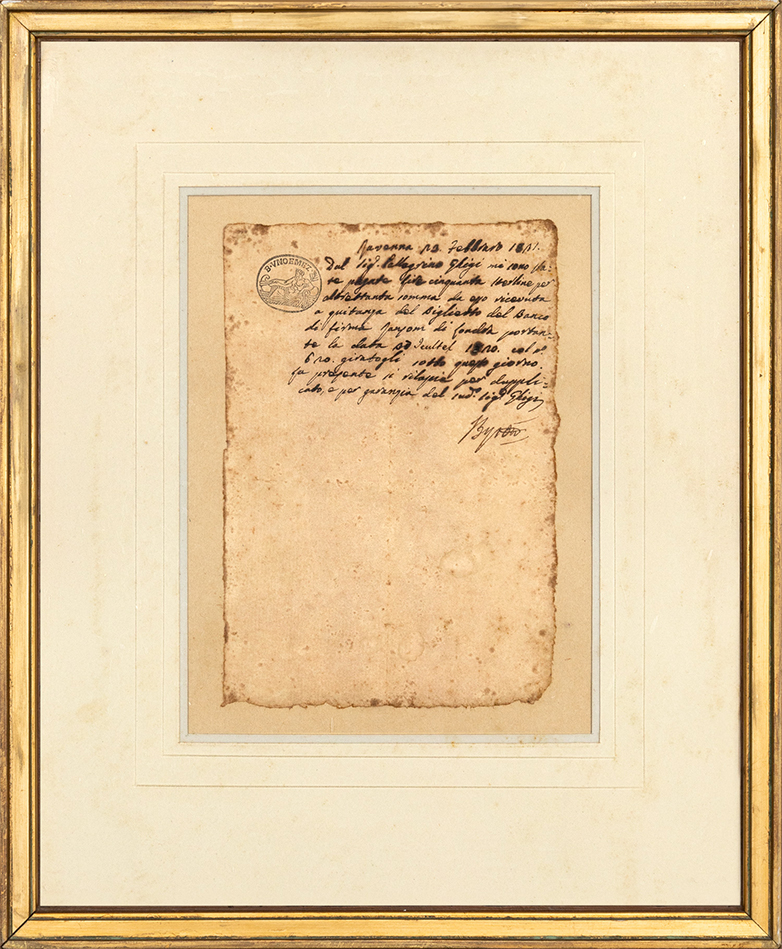 B. UNO E MEZ
Ravenna 23. Febbraro 1821.
Dal Sigr. Pellegrino Ghigi mi sono sta-
te pagate lire cinquanta sterline per
altrettanta somma da esso ricevuta
a quitanza del Biglietto del Banco
di firma Ransom di Londra portan-
te la data 1820. col n.
620. giratogli sotto questo giorno.
La presente si rilascia per dupli-
cato, e per garanzia del sud. Sigr. Ghigi
Byron